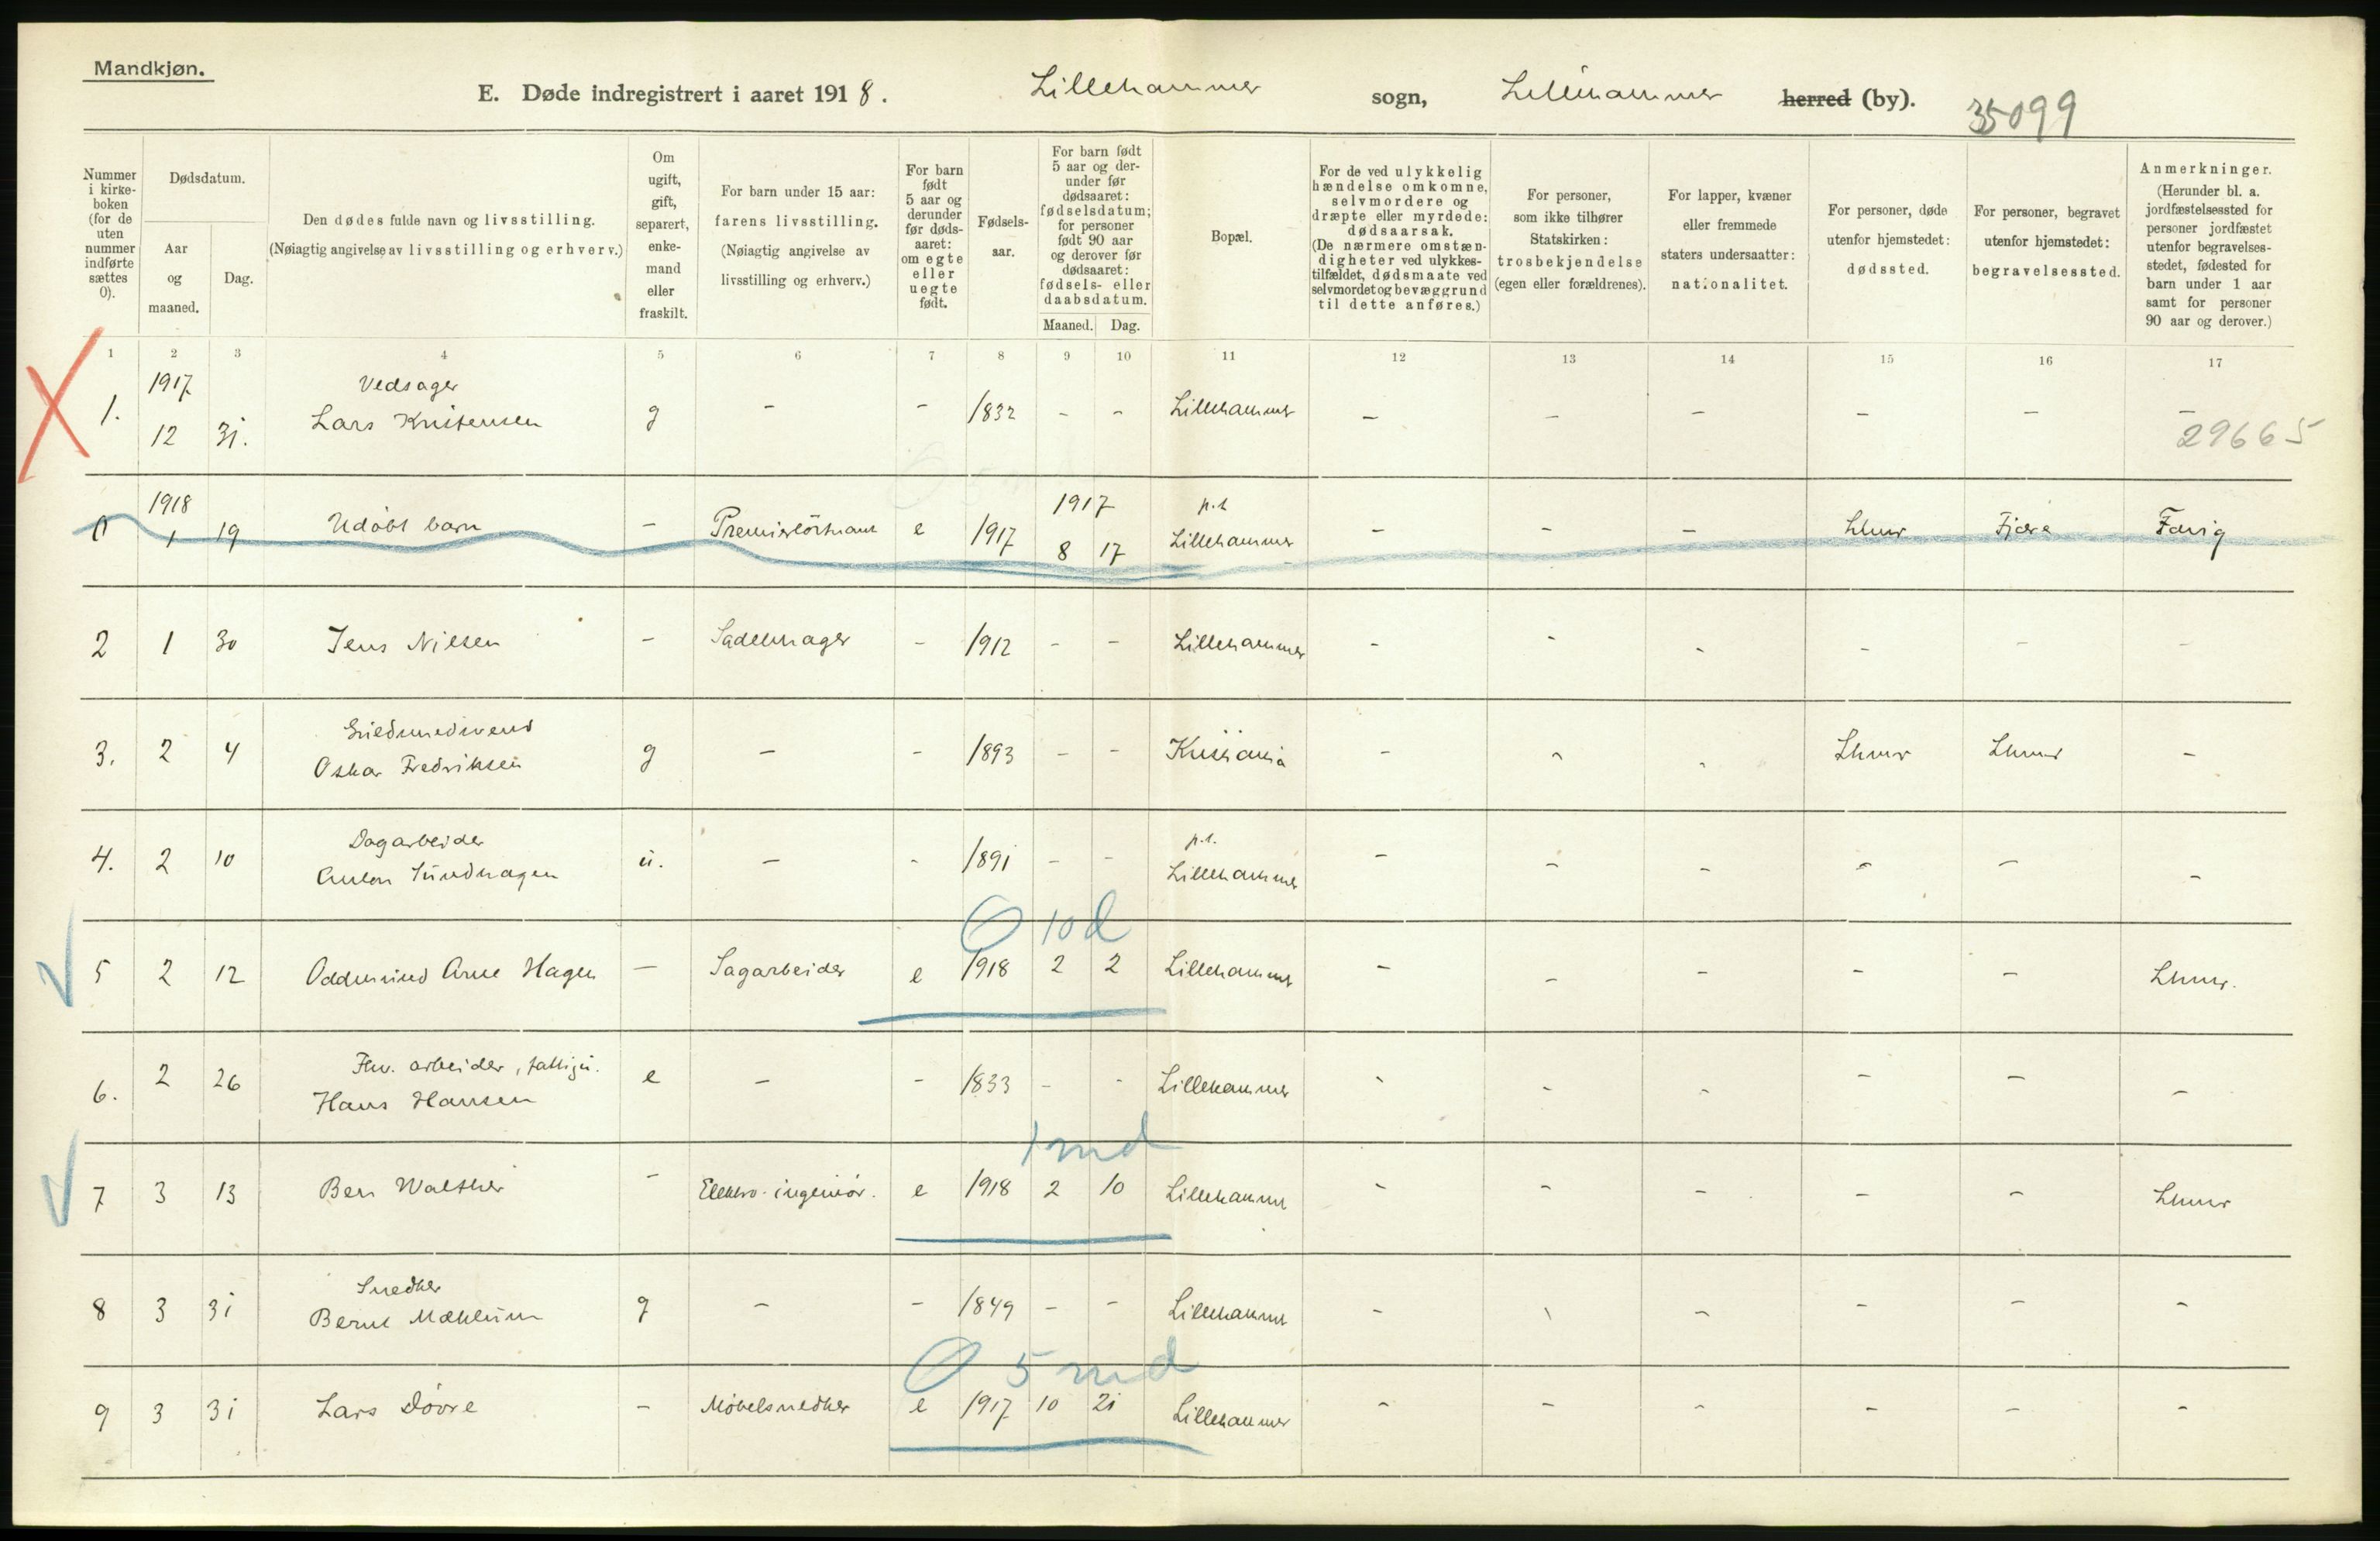 Mandkjøn.
E. Døde indregistrert i aaret 1918. Lillehammer sogn, Lillehammer herred (by). 35099
Nummer i kirke-boken (for de uten nummer indførte sættes 0).
Dødsdatum.
Aar og maaned.
Dag.
Den dødes fulde navn og livsstilling.
(Nøiagtig angivelse av livsstilling og erhverv.)
Om ugift, gift, separert, enke-mand eller fraskilt.
For barn under 15 aar: farens livsstilling.
(Nøiagtig angivelse av livsstilling og erhverv.)
For barn født 5 aar og derunder før døds-aaret: om egte eller uegte født.
Fødsels-aar.
For barn født 5 aar og der-under før dødsaaret: fødselsdatum; for personer født 90 aar og derover før dødsaaret: fødsels- eller daabsdatum.
Maaned. Dag.
Bopæl.
For de ved ulykkelig hændelse omkomne, selvmordere og dræpte eller myrdede: dødsaarsak.
(De nærmere omstæn-digheter ved ulykkes-tilfældet, dødsmaate ved selvmordet og bevæggrund til dette anføres.)
For personer, som ikke tilhører Statskirken: trosbekjendelse (egen eller forældrenes).
For lapper, kvæner eller fremmede staters undersaatter: nationalitet.
For personer, døde utenfor hjemstedet: dødssted.
For personer, begravet utenfor hjemstedet: begravelsessted.
Anmerkninger.
(Herunder bl. a. jordfæstelsessted for personer jordfæstet utenfor begravelses-stedet, fødested for barn under 1 aar samt for personer 90 aar og derover.)
1 2 3 4 5 6 7 8 9 10 11 12 13 14 15 16 17
1917 Vedsager
1. 12 31. Lars Kristensen g - - 1832 - - Lillehammer - - - - - -
29665
1918 1917 p.t.
0 1 19 Udøbt barn - Premierløitnant e 1917 8 17 Lillehammer - - - Lhmr Fjære
2 1 30 Jens Nilsen - Sadelmager - 1912 - - Lillehammer - - - - - -
3. 2 4 Oskar Fredriksen g - - 1893 - - Kristiania - - - Lhmr Lhmr -
Dagarbeider p.t.
4. 2 10 Anton Sundhagen u. - - 1891 - - Lillehammer - - - - - -
10 d
5 2 12 Oddmund Arne Hagen - Sagarbeider e 1918 2 2 Lillehammer - - - - - Lhmr.
Fhv. arbeider,
6. 2 26 Hans Hansen e - - 1833 - - Lillehammer - - - - - -
1 md
7 3 13 Walther - Elektro-ingeniør. e 1918 2 10 Lillehammer - - - - - Lhmr
Snedker
8 3 31 Bernt Mæhlum g - - 1849 - - Lillehammer - - - - - -
5 md
9 3 31 Lars Dovre - Møbelsnedker e 1917 10 21 Lillehammer - - - - - -